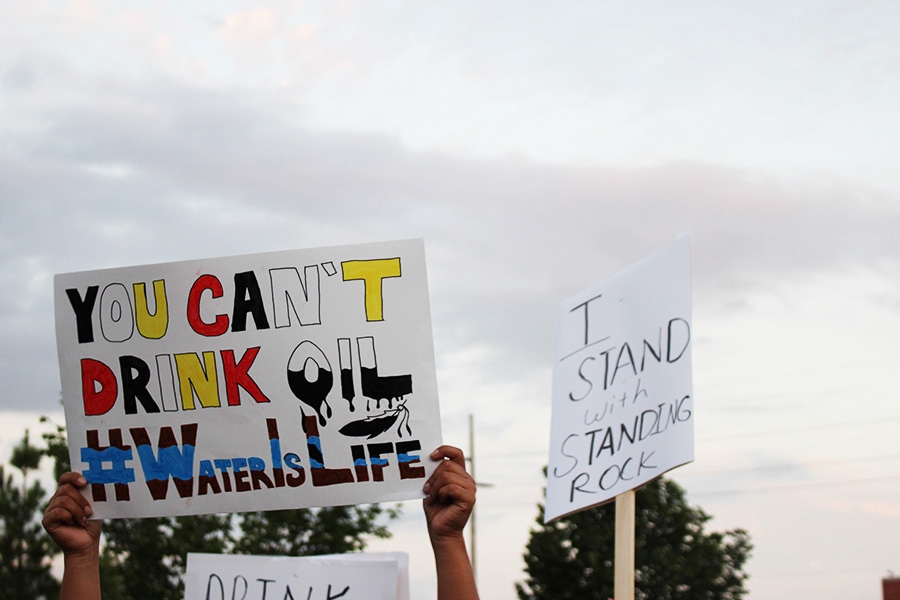 YOU CAN'T
DRINK OIL
#WATERISLIFE
I
STAND
with
STANDING
ROCK
DRINK